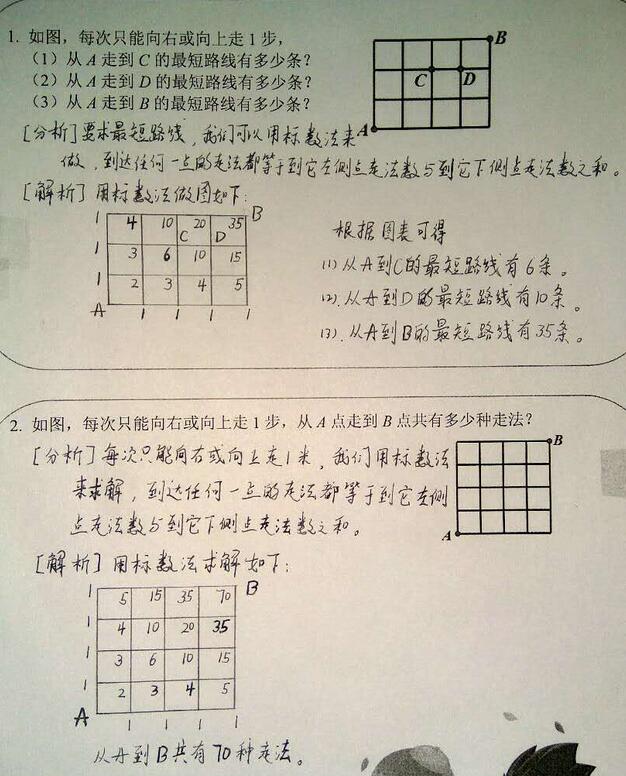 1. 如图，每次只能向右或向上走1步，
（1）从A走到C的最短路线有多少条？
（2）从A走到D的最短路线有多少条？
（3）从A走到B的最短路线有多少条？
B
C D
A
[分析]要求最短路线，我们可以用标数法来
做，到达任何一点的走法都等于到它左侧点走法数与到它下侧点走法数之和。
[解析]用标数法做图如下：
1 4 10 20 35 B
C D
1 3 6 10 15
1 2 3 4 5
A 1 1 1 1
根据图表可得
(1)从A到C的最短路线有6条。
(2).从A到D的最短路线有10条。
(3).从A到B的最短路线有35条。
2. 如图，每次只能向右或向上走1步，从A点走到B点共有多少种走法？
B
A
[分析]每次只能向右或向上走1米，我们用标数法
来求解，到达任何一点的走法都等于到它左侧
点走法数与到它下侧点走法数之和。
[解析]用标数法求解如下：
1 5 15 35 70 B
1 4 10 20 35
1 3 6 10 15
1 2 3 4 5
A 1 1 1 1
从A到B共有70种走法。